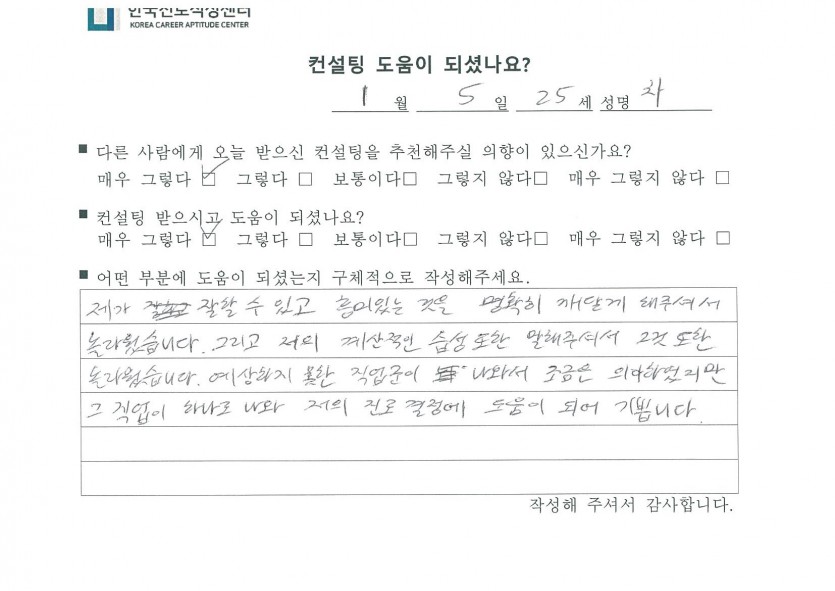 한국진로적성센터
KOREA CAREER APTITUDE CENTER
컨설팅 도움이 되셨나요?
1 월 5 일 25 세 성명 차
■ 다른 사람에게 오늘 받으신 컨설팅을 추천해주실 의향이 있으신가요?
매우 그렇다 ☑ 그렇다 □ 보통이다□ 그렇지 않다□ 매우 그렇지 않다 □
■ 컨설팅 받으시고 도움이 되셨나요?
매우 그렇다 ☑ 그렇다 □ 보통이다□ 그렇지 않다□ 매우 그렇지 않다 □
■ 어떤 부분에 도움이 되셨는지 구체적으로 작성해주세요.
제가 잘할 수 있고 흥미있는 것을 명확히 깨닫게 해주셔서
놀라웠습니다. 그리고 저의 계산적인 습성 또한 말해주셔서 그것 또한
놀라웠습니다. 예상하지 못한 직업군이 나와서 조금은 의아하였지만
그 직업이 하나로 나와 저의 진로 결정에 도움이 되어 기쁩니다.
작성해 주셔서 감사합니다.